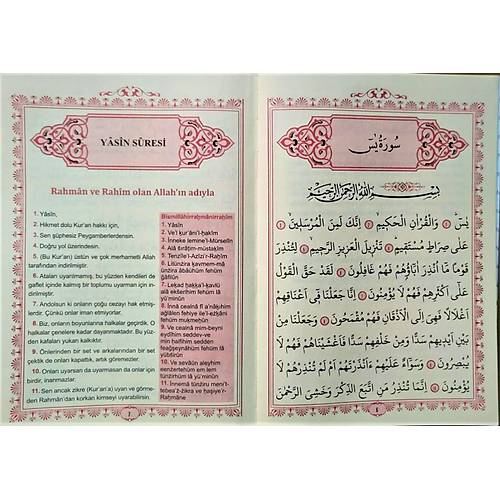 YÂSÎN SÛRESİ
Rahmân ve Rahîm olan Allah'ın adıyla
1. Yâsîn,
2. Hikmet dolu Kur'an hakkı için,
3. Sen şüphesiz Peygamberlerdensin.
4. Doğru yol üzerindesin.
5. (Bu Kur'an) üstün ve çok merhametli Allah
tarafından indirilmiştir.
6. Ataları uyarılmamış, bu yüzden kendileri de
gaflet içinde kalmış bir toplumu uyarman için in-
dirilmiştir.
7. Andolsun ki onların çoğu cezayı hak etmiş-
lerdir. Çünkü onlar iman etmiyorlar.
8. Biz, onların boyunlarına halkalar geçirdik. O
halkalar çenelerine kadar dayanmaktadır. Bu yüz-
den kafaları yukarı kalkıktır.
9. Önlerinden bir set ve arkalarından bir set
çektik de onları kapattık, artık göremezler.
10. Onları uyarsan da uyarmasan da onlar için
birdir, inanmazlar.
11. Sen ancak zikre (Kur'an'a) uyan ve görme-
den Rahmân'dan korkan kimseyi uyarabilirsin.
Bismillâhirraḥmânirraḥîm
1. Yâsîn
2. Ve'l ḳur'âni'l-ḥakîm
3. İnneke lemine'l-Mürselîn
4. Alâ ṣırâṭım-müstaḳîm
5. Tenzîle'l-Azîzi'r-Raḥîm
6. Litünzira ḳavmem-mâ
ünzira âbâühüm fehüm
ğâfilûn
7. Leḳad ḥaḳḳa'l-ḳavlü
alâ ekŝerihim fehüm lâ
yü'minûn
8. İnnâ cealnâ fî a'nâḳıhim
ağlâlen fehiye ile'l-eẑḳâni
fehüm muḳmeḥûn
9. Ve cealnâ mim-beyni
eydîhim seddev-ve
min ḫalfihim sedden
feağşeynâhüm fehüm lâ
yübṣirûn
10. Ve sevâün aleyhim
eenẑertehüm em lem
tünẑirhüm lâ yü'minûn
11. İnnemâ tünẑiru meni't-
tebea'ẑ-ẑikra ve ḫaşiye'r-
Raḥmâne
سُورَةُ يٰسٓ
بِسْمِ اللّٰهِ الرَّحْمٰنِ الرَّحِيمِ
يٰسٓ ﴿١﴾ وَالْقُرْاٰنِ الْحَكِيمِ ﴿٢﴾ اِنَّكَ لَمِنَ الْمُرْسَلِينَ ﴿٣﴾
عَلٰى صِرَاطٍ مُسْتَقِيمٍ ﴿٤﴾ تَنْزِيلَ الْعَزِيزِ الرَّحِيمِ ﴿٥﴾ لِتُنْذِرَ
قَوْمًا مَٓا اُنْذِرَ اٰبَٓاؤُهُمْ فَهُمْ غَافِلُونَ ﴿٦﴾ لَقَدْ حَقَّ الْقَوْلُ
عَلٰٓى اَكْثَرِهِمْ فَهُمْ لَا يُؤْمِنُونَ ﴿٧﴾ اِنَّا جَعَلْنَا فِٓى اَعْنَاقِهِمْ
اَغْلَالًا فَهِىَ اِلَى الْاَذْقَانِ فَهُمْ مُقْمَحُونَ ﴿٨﴾ وَجَعَلْنَا مِنْ
بَيْنِ اَيْدِيهِمْ سَدًّا وَمِنْ خَلْفِهِمْ سَدًّا فَاَغْشَيْنَاهُمْ فَهُمْ لَا
يُبْصِرُونَ ﴿٩﴾ وَسَوَٓاءٌ عَلَيْهِمْ ءَاَنْذَرْتَهُمْ اَمْ لَمْ تُنْذِرْهُمْ لَا
يُؤْمِنُونَ ﴿١٠﴾ اِنَّمَا تُنْذِرُ مَنِ اتَّبَعَ الذِّكْرَ وَخَشِىَ الرَّحْمٰنَ